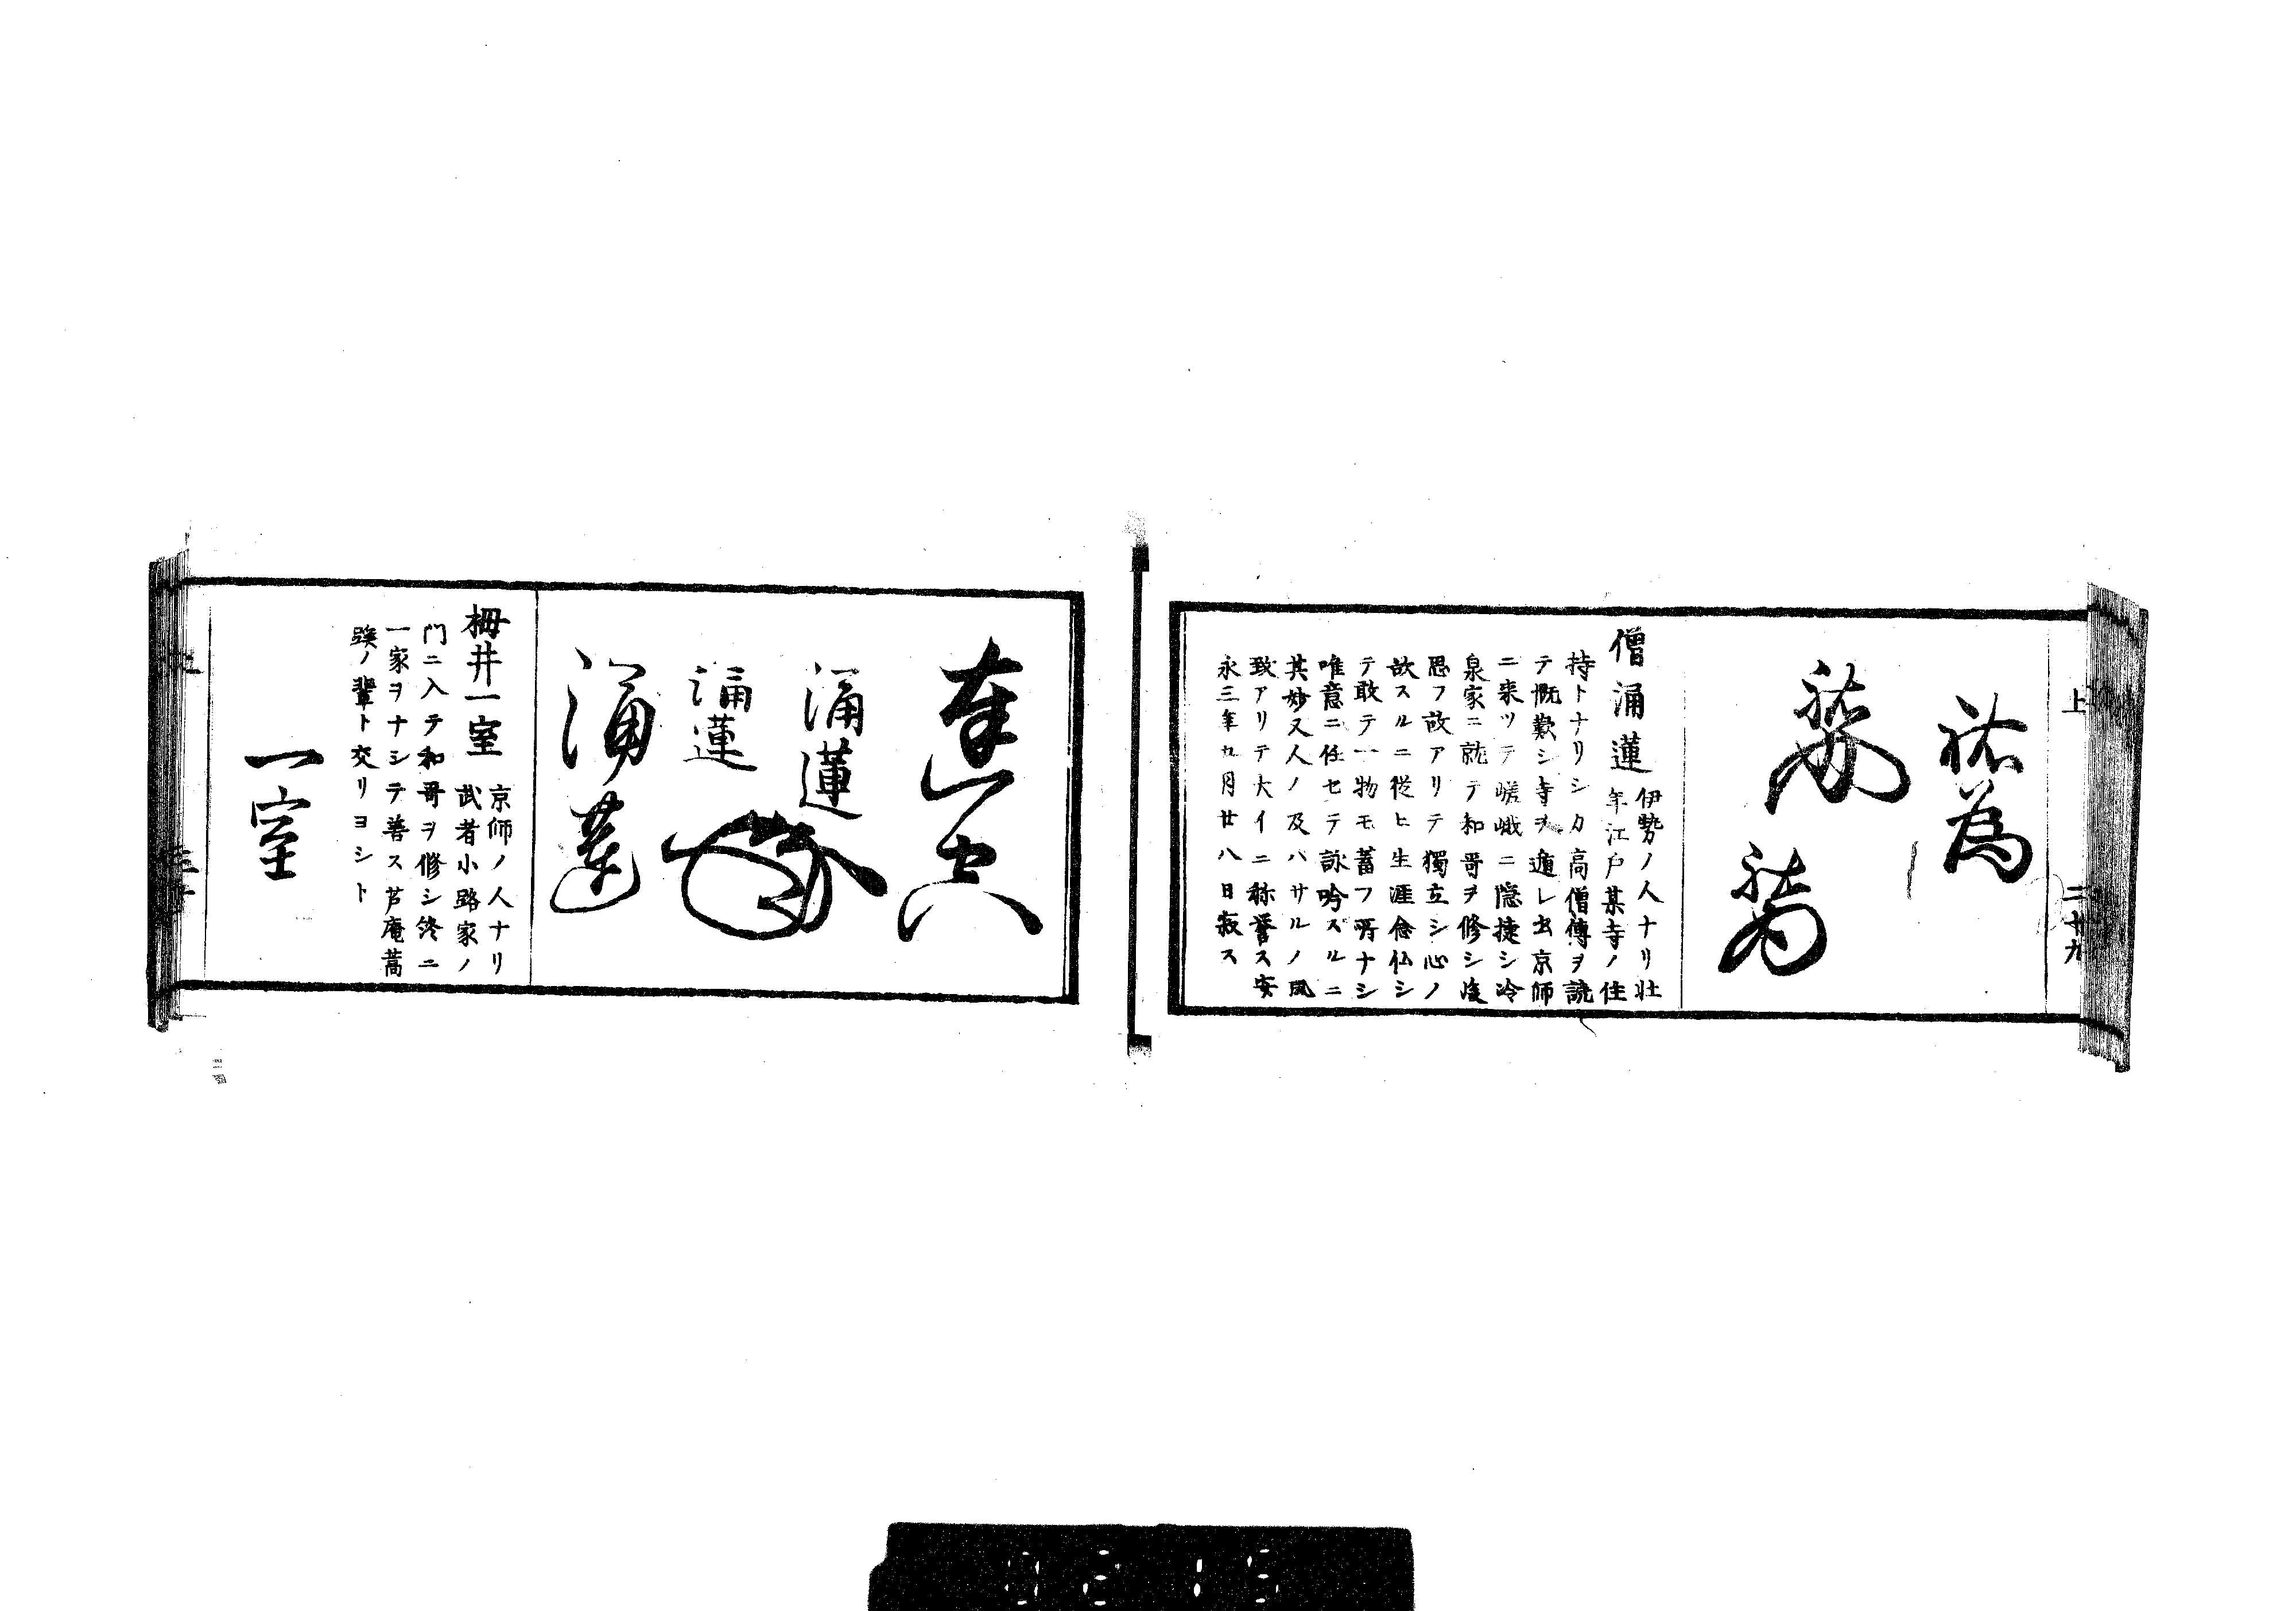 上 二十九
祐為
僧涌蓮
伊勢ノ人ナリ壮
年江戸某寺ノ住
持トナリシカ高僧傳ヲ読
テ慨歎シ寺ヲ遁レ出京師
ニ来ツテ嵯峨ニ隠捷シ冷
泉家ニ就テ和哥ヲ修シ後
思フ故アリテ獨立シ心ノ
欲スルニ従ヒ生涯念仏シ
テ敢テ一物モ蓄フ所ナシ
唯意ニ任セテ詠吟スルニ
其妙又人ノ及バサルノ風
致アリテ大イニ称誉ス安
永三年九月廿八日寂ス
涌蓮
涌蓮
涌蓮
栂井一室
京師ノ人ナリ
武者小路家ノ
門ニ入テ和哥ヲ修シ終ニ
一家ヲナシテ善ス芦庵蒿
蹊ノ輩ト交リヨシト
一室